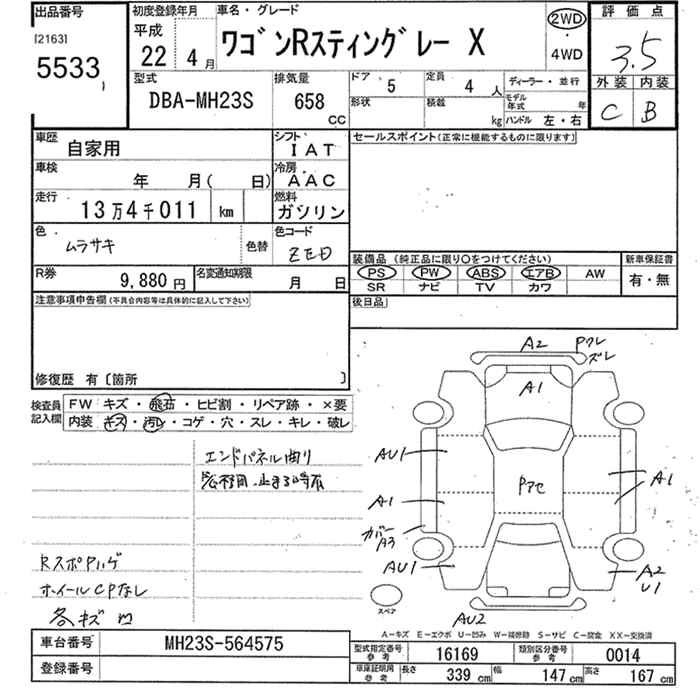 出品番号 初度登録年月 車名・グレード 2WD 評価点
[2163] 平成
5533 22年 4月 ワゴンRスティングレー X ・ 3.5
4WD
型式 排気量 ドア 5 定員 4人 ディーラー・並行 外装 内装
DBA-MH23S 658 cc 形状 積載 kg モデル年式 年 C B
ハンドル 左・右
車歴 自家用 シフト IAT セールスポイント(正常に機能するものに限ります)
車検 年 月( 日) 冷房 AAC
走行 13万4千011 km 燃料 ガソリン
色 ムラサキ 色替 色コード ZED
装備品 (純正品に限り〇をつけてください) 新車保証書
PS PW ABS エアB AW 有・無
SR ナビ TV カワ
R券 9,880円 名変通知期限 月 日
後日品
注意事項申告欄(不具合内容等は具体的に記入して下さい)
修復歴 有〔箇所 〕
検査員記入欄 FW キズ・飛石・ヒビ割・リペア跡・×要
内装 キズ・汚レ・コゲ・穴・スレ・キレ・破レ
A2 Pクレ
ズレ
A1
エンドパネル曲り
AU1
Pアセ A1
A1
カバー
A3
RスポPハゲ
AU1 A2
U1
ホイールCPなし
各キズ凹
スペア
AU2
A-キズ E-エクボ U-凹み W-補修跡 S-サビ C-腐食 XX-交換済
車台番号 MH23S-564575
型式指定番号 参考 16169 類別区分番号 参考 0014
登録番号
車庫証明用 参考 長さ 339cm 幅 147cm 高さ 167cm